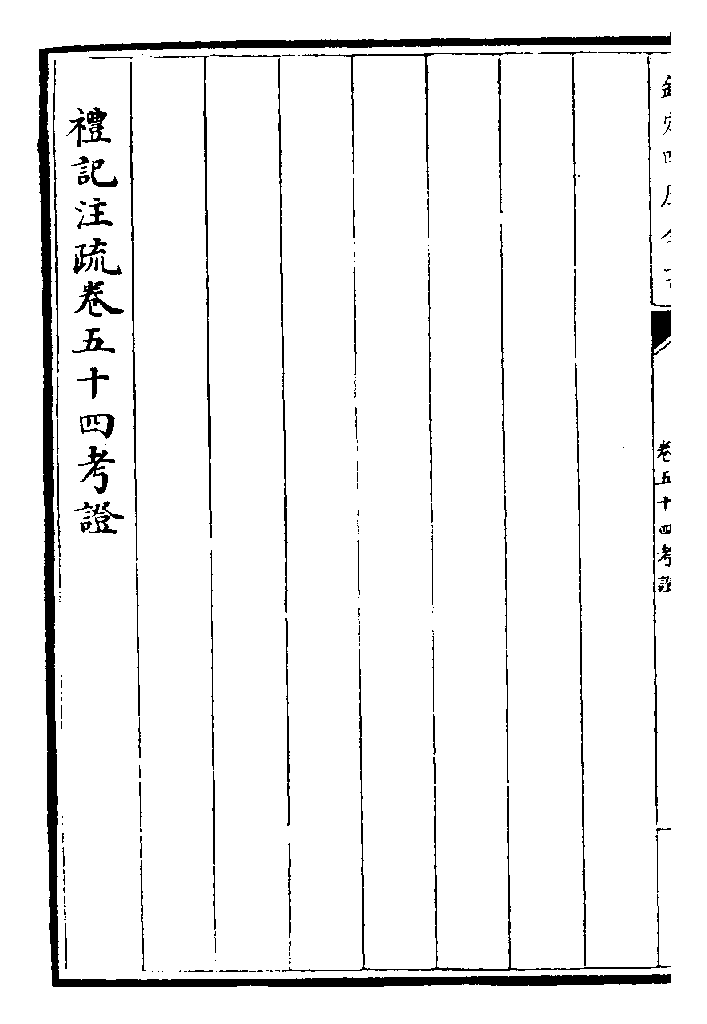 欽定四庫全書
卷五十四考證
禮記注疏卷五十四考證